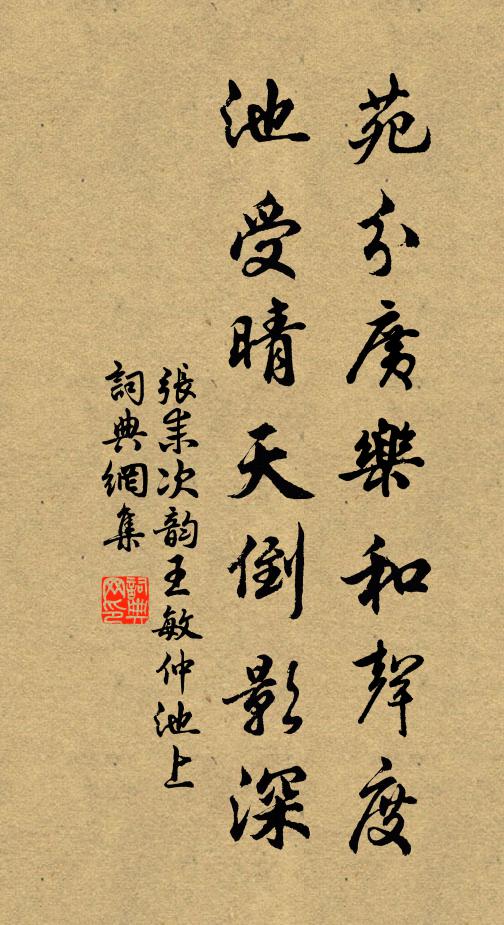 苑分廣樂和聲度
池受晴天倒影深
張耒次韵王敏仲池上
詞典網集
詞典网印